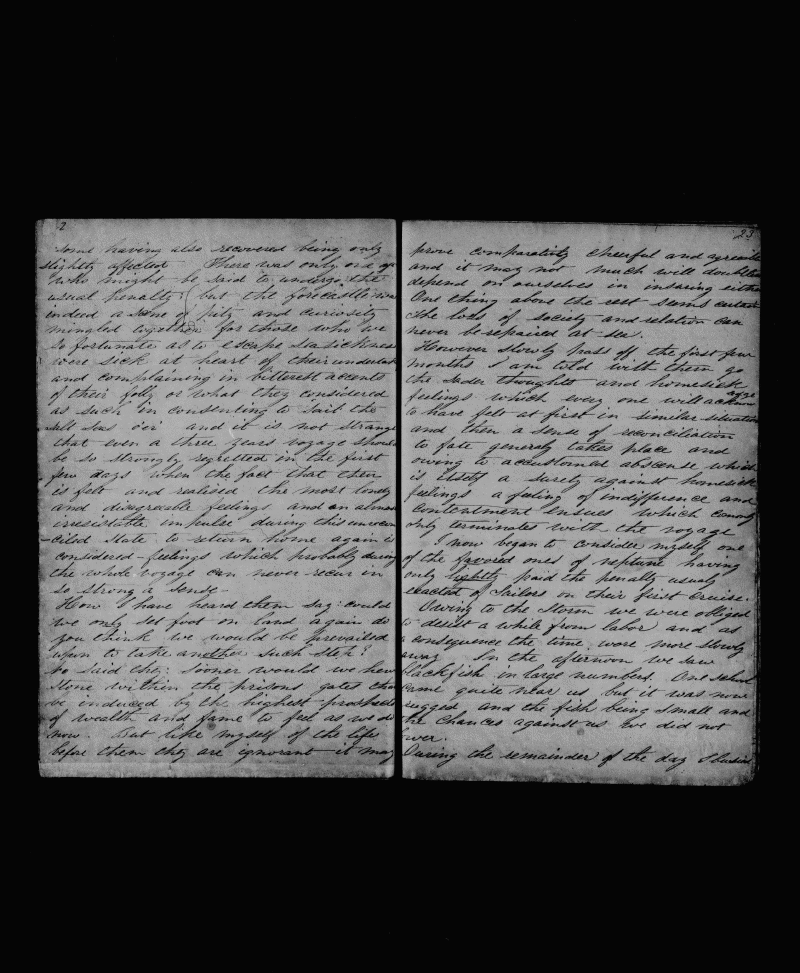 2
some having also recovered being only
slightly affected There was only one or
who might be said to undergo the
usual penalty but the forecastle was
indeed a scene of pity and curiosity
mingled together for those who were
so fortunate as to escape seasickness
were sick at heart of their undertak
and complaining in bitterest accents
of their folly or what they considered
as such in consenting to sail the
salt seas o'er and it is not strange
that even a three years voyage should
be so strongly regretted in the first
few days when the fact that then
is felt and realised the most lonely
and disagreeable feelings and an almost
irresistable impulse during this unrecon
-ciled state to return home again is
considered - feelings which probably during
the whole voyage can never recur in
so strong a sense -
How I have heard them say: could
we only set foot on land again do
you think we would be prevailed
upon to take another such step?
No said they: sooner would we hew
stone within the prisons gates than
be induced by the highest prospects
of wealth and fame to feel as we do
now. But like myself of the life
before them they are ignorant it may
23
prove comparativly cheerful and agreeable
and it may not much will doubtless
depend on ourselves in insuring either
One thing above the rest seems certain
the loss of society and relation can
never be repaired at sea.
However slowly pass of the first few
months I am told with them go
the sader thoughts and homesick
feelings which every one will acknow
to have felt at first in similar situation
and then a sense of reconciliation
to fate generaly takes place and
owing to accustomed abscense which
is itself a surety against homesick
feelings a feeling of indifference and
contentment ensues which comonly
only terminates with the voyage
I now began to consider myself one
of the favored ones of neptune having
only lightly paid the penalty usually
exacted of sailors on their first cruise.
Owing to the storm we were obliged
to desist a while from labor and as
a consequence the time wore more slowly
away In the afternoon we saw
blackfish in large numbers. One school
came quite near us but it was now
rugged and the fish being small and
the chances against us we did not
lower.
During the remainder of the day I busied